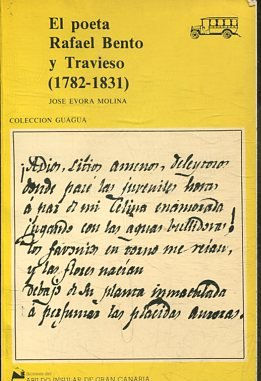 El poeta
Rafael Bento
y Travieso
(1782-1831)
JOSE EVORA MOLINA
COLECCION GUAGUA
¡Adios, sitios amenos, deleytosos
donde pacé las juveniles horas
á par de mi Felina enamorada
jugando con las aguas bullidoras!
los favonios en torno me reian,
y las flores nacian
debajo de su planta inmaculada
á perfumar las placidas auroras.
Ediciones del
INSULAR DE GRAN CANARIA